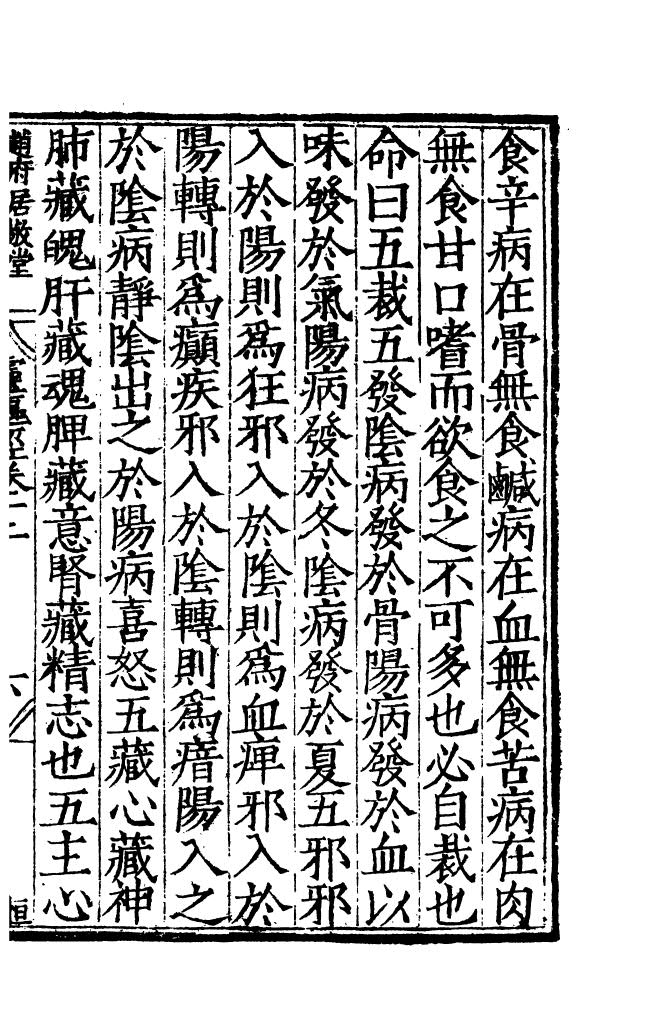 食辛病在骨無食鹹病在血無食苦病在肉
無食甘口嗜而欲食之不可多也必自裁也
命曰五裁五發陰病發於骨陽病發於血以
味發於氣陽病發於冬陰病發於夏五邪邪
入於陽則爲狂邪入於陰則爲血痺邪入於
陽轉則爲癲疾邪入於陰轉則爲瘖陽入之
於陰病靜陰出之於陽病喜怒五藏心藏神
肺藏魄肝藏魂脾藏意腎藏精志也五主心
趙府居敬堂 靈樞 六